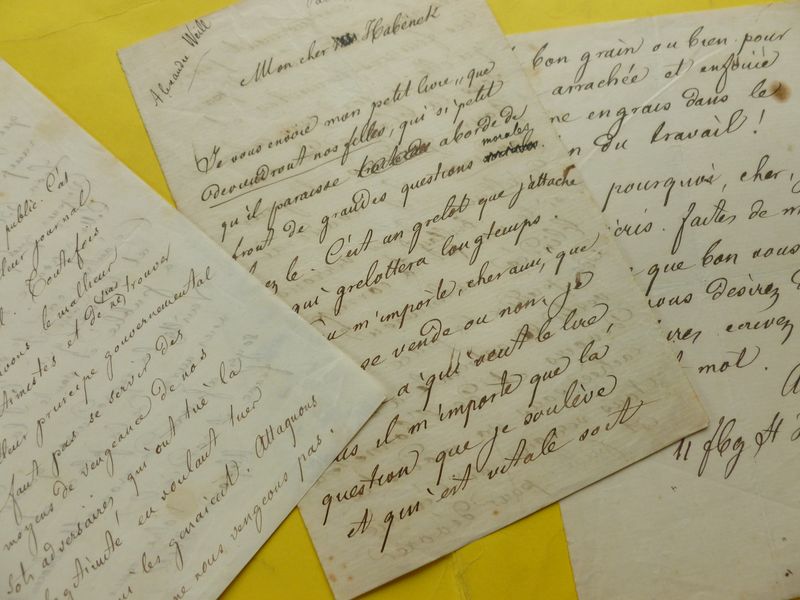 public. C'est
leur journal.
Toutefois
avons le malheur
et de pas ne trouver
leur principe gouvernemental
faut pas se servir des
moyens de vengeance de nos
Sots adversaires, qui ont tué la
en voulant tuer
qui les gênaient. Attaquons
ne nous vengeons pas.
Alexandre Weill
Mon cher Habènek
Je vous envoie mon petit livre „que
deviendront nos filles, qui si petit
qu'il paraisse aborde de
front de grandes questions morales
sociales.
ez le. C'est un grelot que j'attache
qui grelottera longtemps.
m'importe, cher ami, que
se vende ou non, je
a qui veut le lire,
il m'importe que la
question que je soulève
et qui est vitale soit
bon grain ou bien pour
arrachée et enfouie
engrais dans le
du travail!
pourquoi, cher,
cris. faites de m
que bon vous
vous désirez
ires ecrivez
mot.
A
11 fbg H